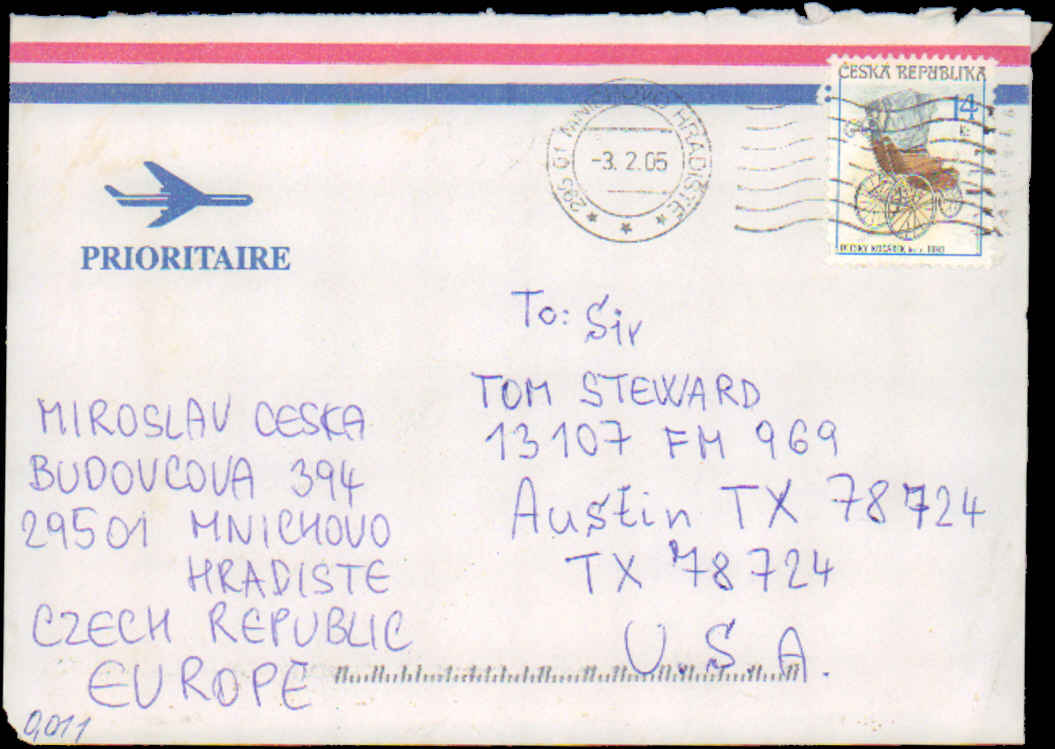 ČESKÁ REPUBLIKA
14
Kč
295 01 MNICHOVO HRADIŠTĚ
-3. 2.05
PRIORITAIRE
To: Sir
TOM STEWARD
13107 FM 969
Austin TX 78724
TX 78724
U.S.A.
MIROSLAV CESKA
BUDOVCOVA 394
29501 MNICHOVO
HRADISTE
CZECH REPUBLIC
EUROPE
0,011